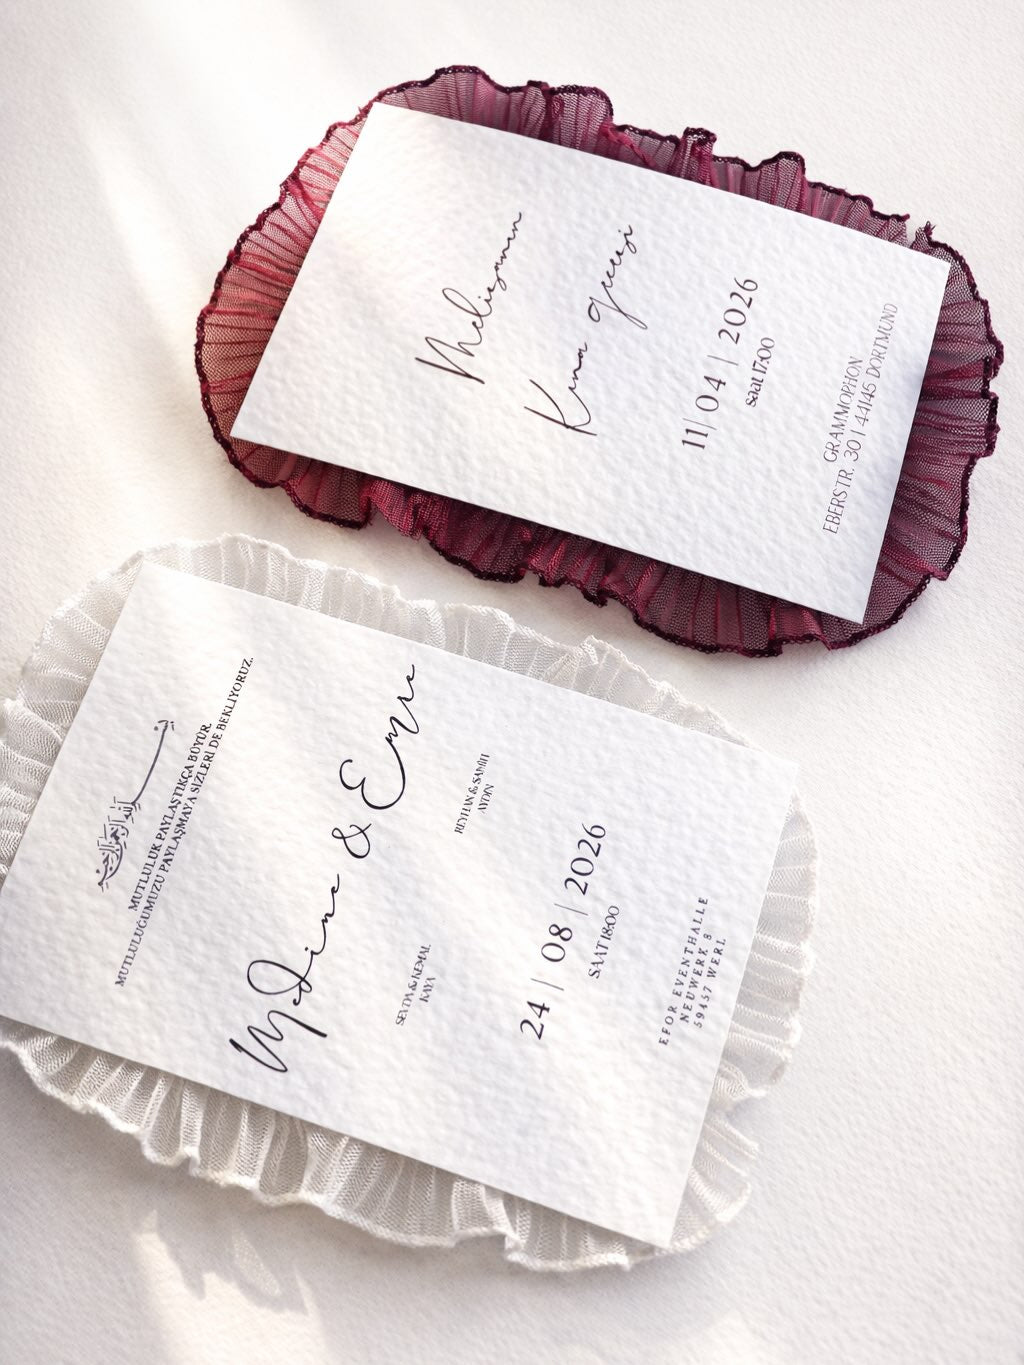 Melisanın
Kına gecesi
11 | 04 | 2026
Saat 17:00
GRAMMOPHON
EBERSTR. 30 | 44145 DORTMUND
بسم الله الرحمن الرحيم
MUTLULUK PAYLAŞTIKÇA BÜYÜR.
MUTLULUĞUMUZU PAYLAŞMAYA SİZLERİ DE BEKLİYORUZ.
Medine & Emre
SEVDA & KEMAL
KAYA
REYHAN & SAMİH
AYDIN
24 | 08 | 2026
SAAT 18:00
EFOR EVENTHALLE
NEUWERK 8
59457 WERL